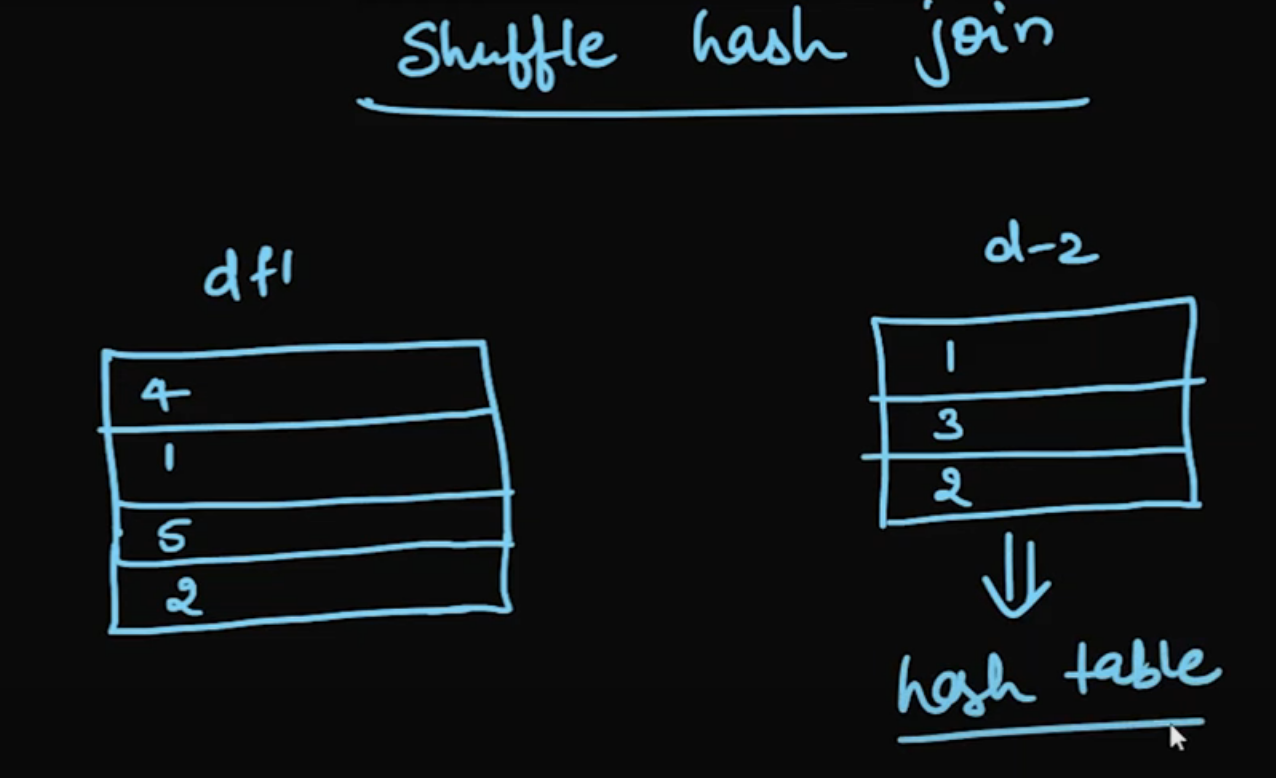 Shuffle hash join
df1
d-2
4
1
5
2
1
3
2
hash table